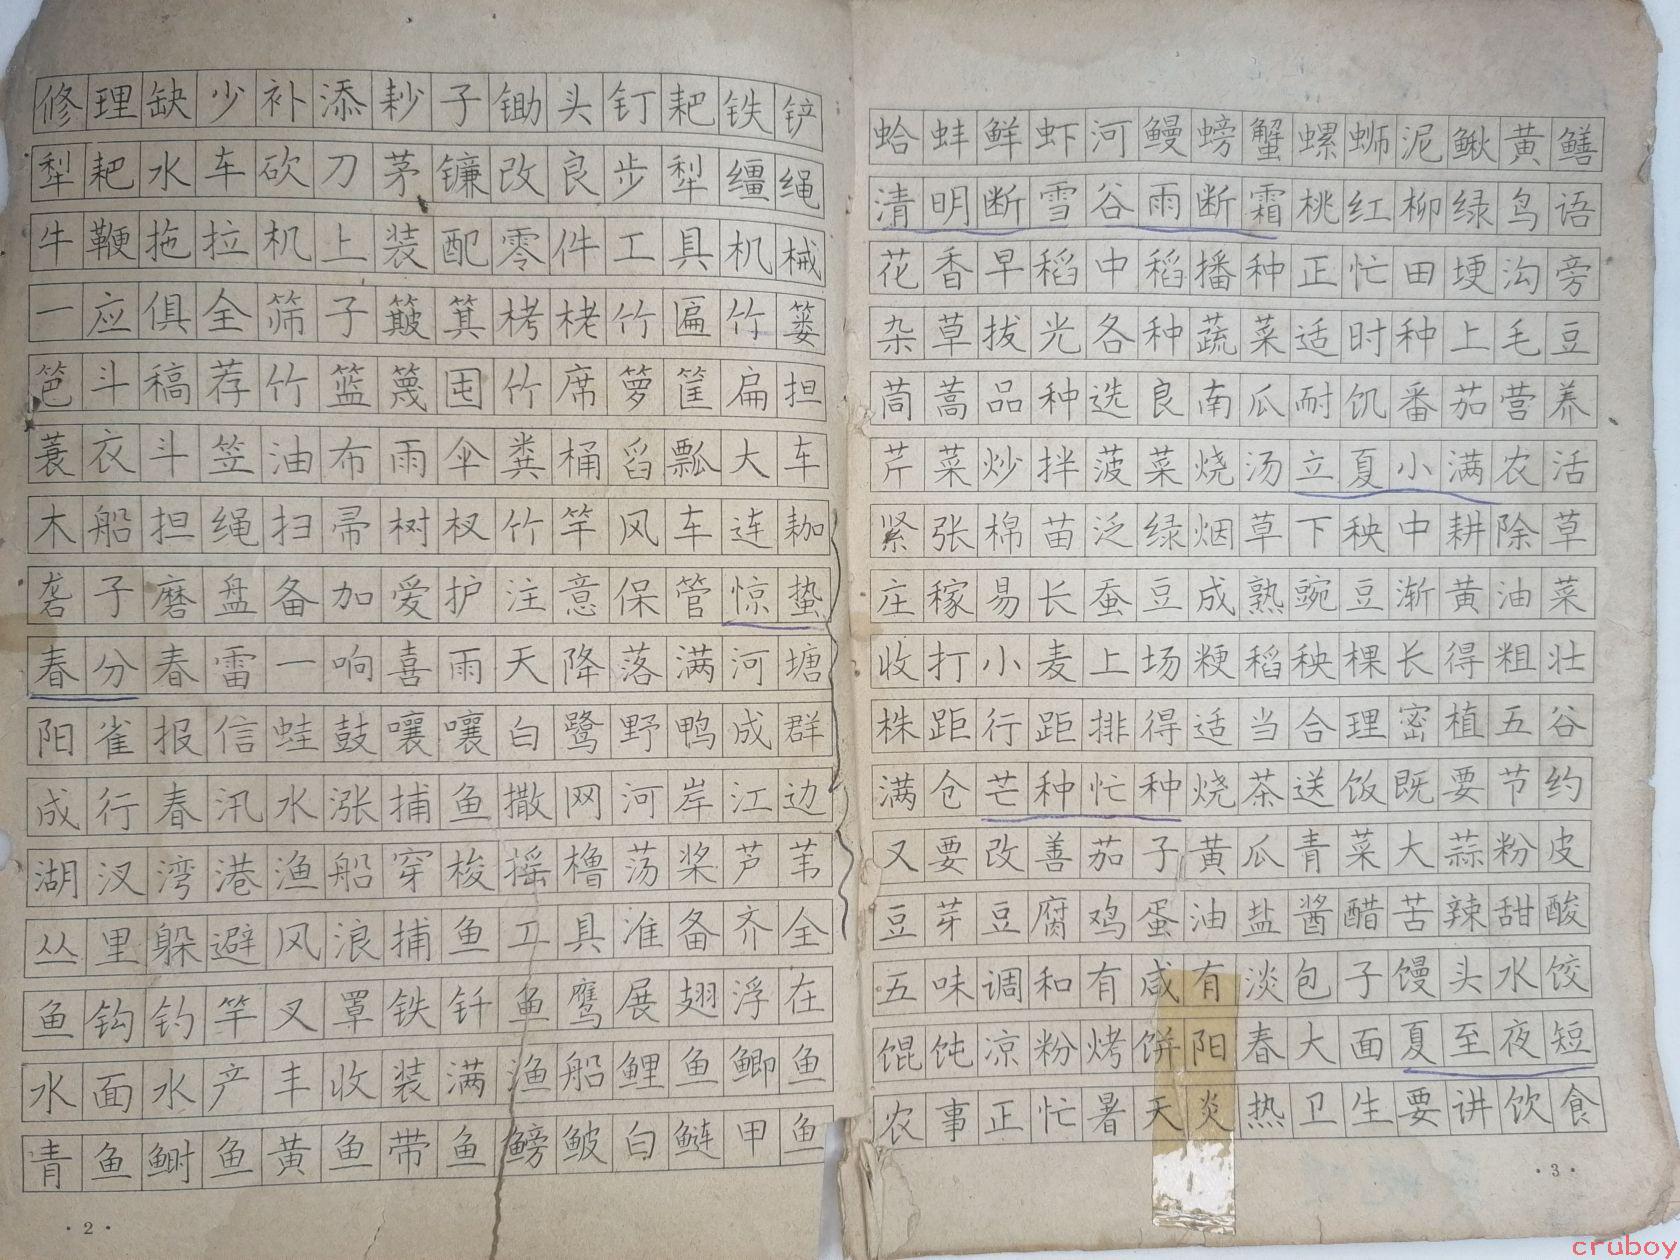 修理缺少补添耖子锄头钉耙铁铲
犁耙水车砍刀茅镰改良步犁缰绳
牛鞭拖拉机上装配零件工具机械
一应俱全筛子簸箕栲栳竹匾竹篓
笆斗稿荐竹篮篾囤竹席箩筐扁担
蓑衣斗笠油布雨伞粪桶舀瓢大车
木船担绳扫帚树杈竹竿风车连耞
砻子磨盘备加爱护注意保管惊蛰
春分春雷一响喜雨天降落满河塘
阳雀报信蛙鼓嚷嚷白鹭野鸭成群
成行春汛水涨捕鱼撒网河岸江边
湖汊湾港渔船穿梭摇橹荡桨芦苇
丛里躲避风浪捕鱼工具准备齐全
鱼钩钓竿叉罩铁钎鱼鹰展翅浮在
水面水产丰收装满渔船鲤鱼鲫鱼
青鱼鲥鱼黄鱼带鱼鳑鲏白鲢甲鱼
·2·
蛤蚌鲜虾河鳗螃蟹螺蛳泥鳅黄鳝
清明断雪谷雨断霜桃红柳绿鸟语
花香早稻中稻播种正忙田埂沟旁
杂草拔光各种蔬菜适时种上毛豆
茼蒿品种选良南瓜耐饥番茄营养
芹菜炒拌菠菜烧汤立夏小满农活
紧张棉苗泛绿烟草下秧中耕除草
庄稼易长蚕豆成熟豌豆渐黄油菜
收打小麦上场粳稻秧棵长得粗壮
株距行距排得适当合理密植五谷
满仓芒种忙种烧茶送饭既要节约
又要改善茄子黄瓜青菜大蒜粉皮
豆芽豆腐鸡蛋油盐酱醋苦辣甜酸
五味调和有咸有淡包子馒头水饺
馄饨凉粉烤饼阳春大面夏至夜短
农事正忙暑天炎热卫生要讲饮食
·3·
cruboy